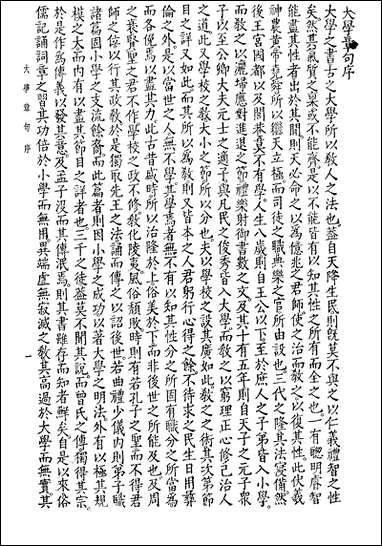 大學章句序
大學之書古之大學所以敎人之法也蓋自天降生民則旣莫不與之以仁義禮智之性
矣然其氣質之稟或不能齊是以不能皆有以知其性之所有而全之也一有聰明睿智
能盡其性者出於其閒則天必命之以爲億兆之君師使之治而敎之以復其性此伏羲
神農黃帝堯舜所以繼天立極而司徒之職典樂之官所由設也三代之隆其法寖備然
後王宮國都以及閭巷莫不有學人生八歲則自王公以下至於庶人之子弟皆入小學
而敎之以灑埽應對進退之節禮樂射御書數之文及其十有五年則自天子之元子衆
子以至公卿大夫元士之適子與凡民之俊秀皆入大學而敎之以窮理正心修己治人
之道此又學校之敎大小之節所以分也夫以學校之設其廣如此敎之之術其次第節
目之詳又如此而其所以爲敎則又皆本之人君躬行心得之餘不待求之民生日用彝
倫之外是以當世之人無不學其學焉者無不有以知其性分之所固有職分之所當爲
而各俛焉以盡其力此古昔盛時所以治隆於上俗美於下而非後世之所能及也及周
之衰賢聖之君不作學校之政不修敎化陵夷風俗頹敗時則有若孔子之聖而不得君
師之位以行其政敎於是獨取先王之法誦而傳之以詔後世若曲禮少儀內則弟子職
諸篇固小學之支流餘裔而此篇者則因小學之成功以著大學之明法外有以極其規
模之大而內有以盡其節目之詳者也三千之徒蓋莫不聞其說而曾氏之傳獨得其宗
於是作爲傳義以發其意及孟子沒而其傳泯焉則其書雖存而知者鮮矣自是以來俗
儒記誦詞章之習其功倍於小學而無用異端虛無寂滅之敎其高過於大學而無實其
大學章句序
一